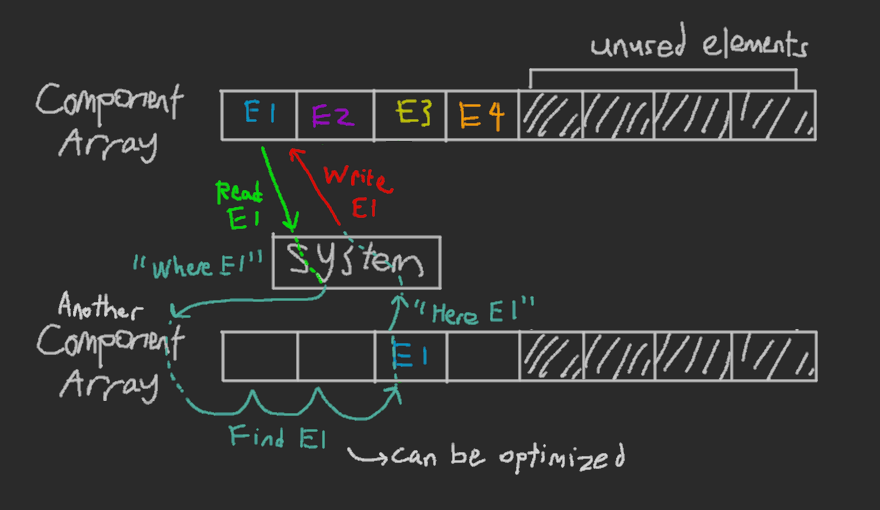 unused elements
Component
Array
E1 E2 E3 E4
Read
E1
Write
E1
System
"Where E1"
"Here E1"
Another
Component
Array
E1
Find E1
can be optimized